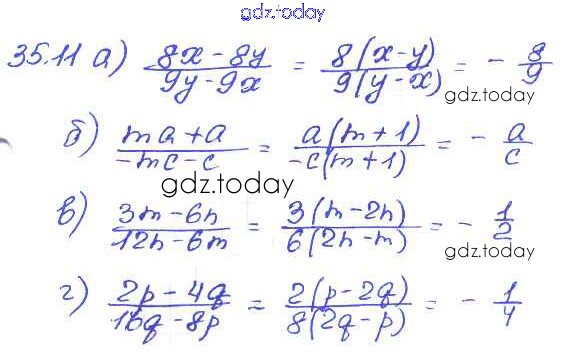 gdz.today
35.11 а) (8x - 8y)/(9y - 9x) = 8(x - y)/9(y - x) = - 8/9
gdz.today
б) (ma + a)/(-mc - c) = a(m + 1)/-c(m + 1) = - a/c
gdz.today
в) (3m - 6n)/(12n - 6m) = 3(n - 2n)/6(2n - m) = - 1/2
gdz.today
г) (2p - 4q)/(16q - 8p) = 2(p - 2q)/8(2q - p) = - 1/4